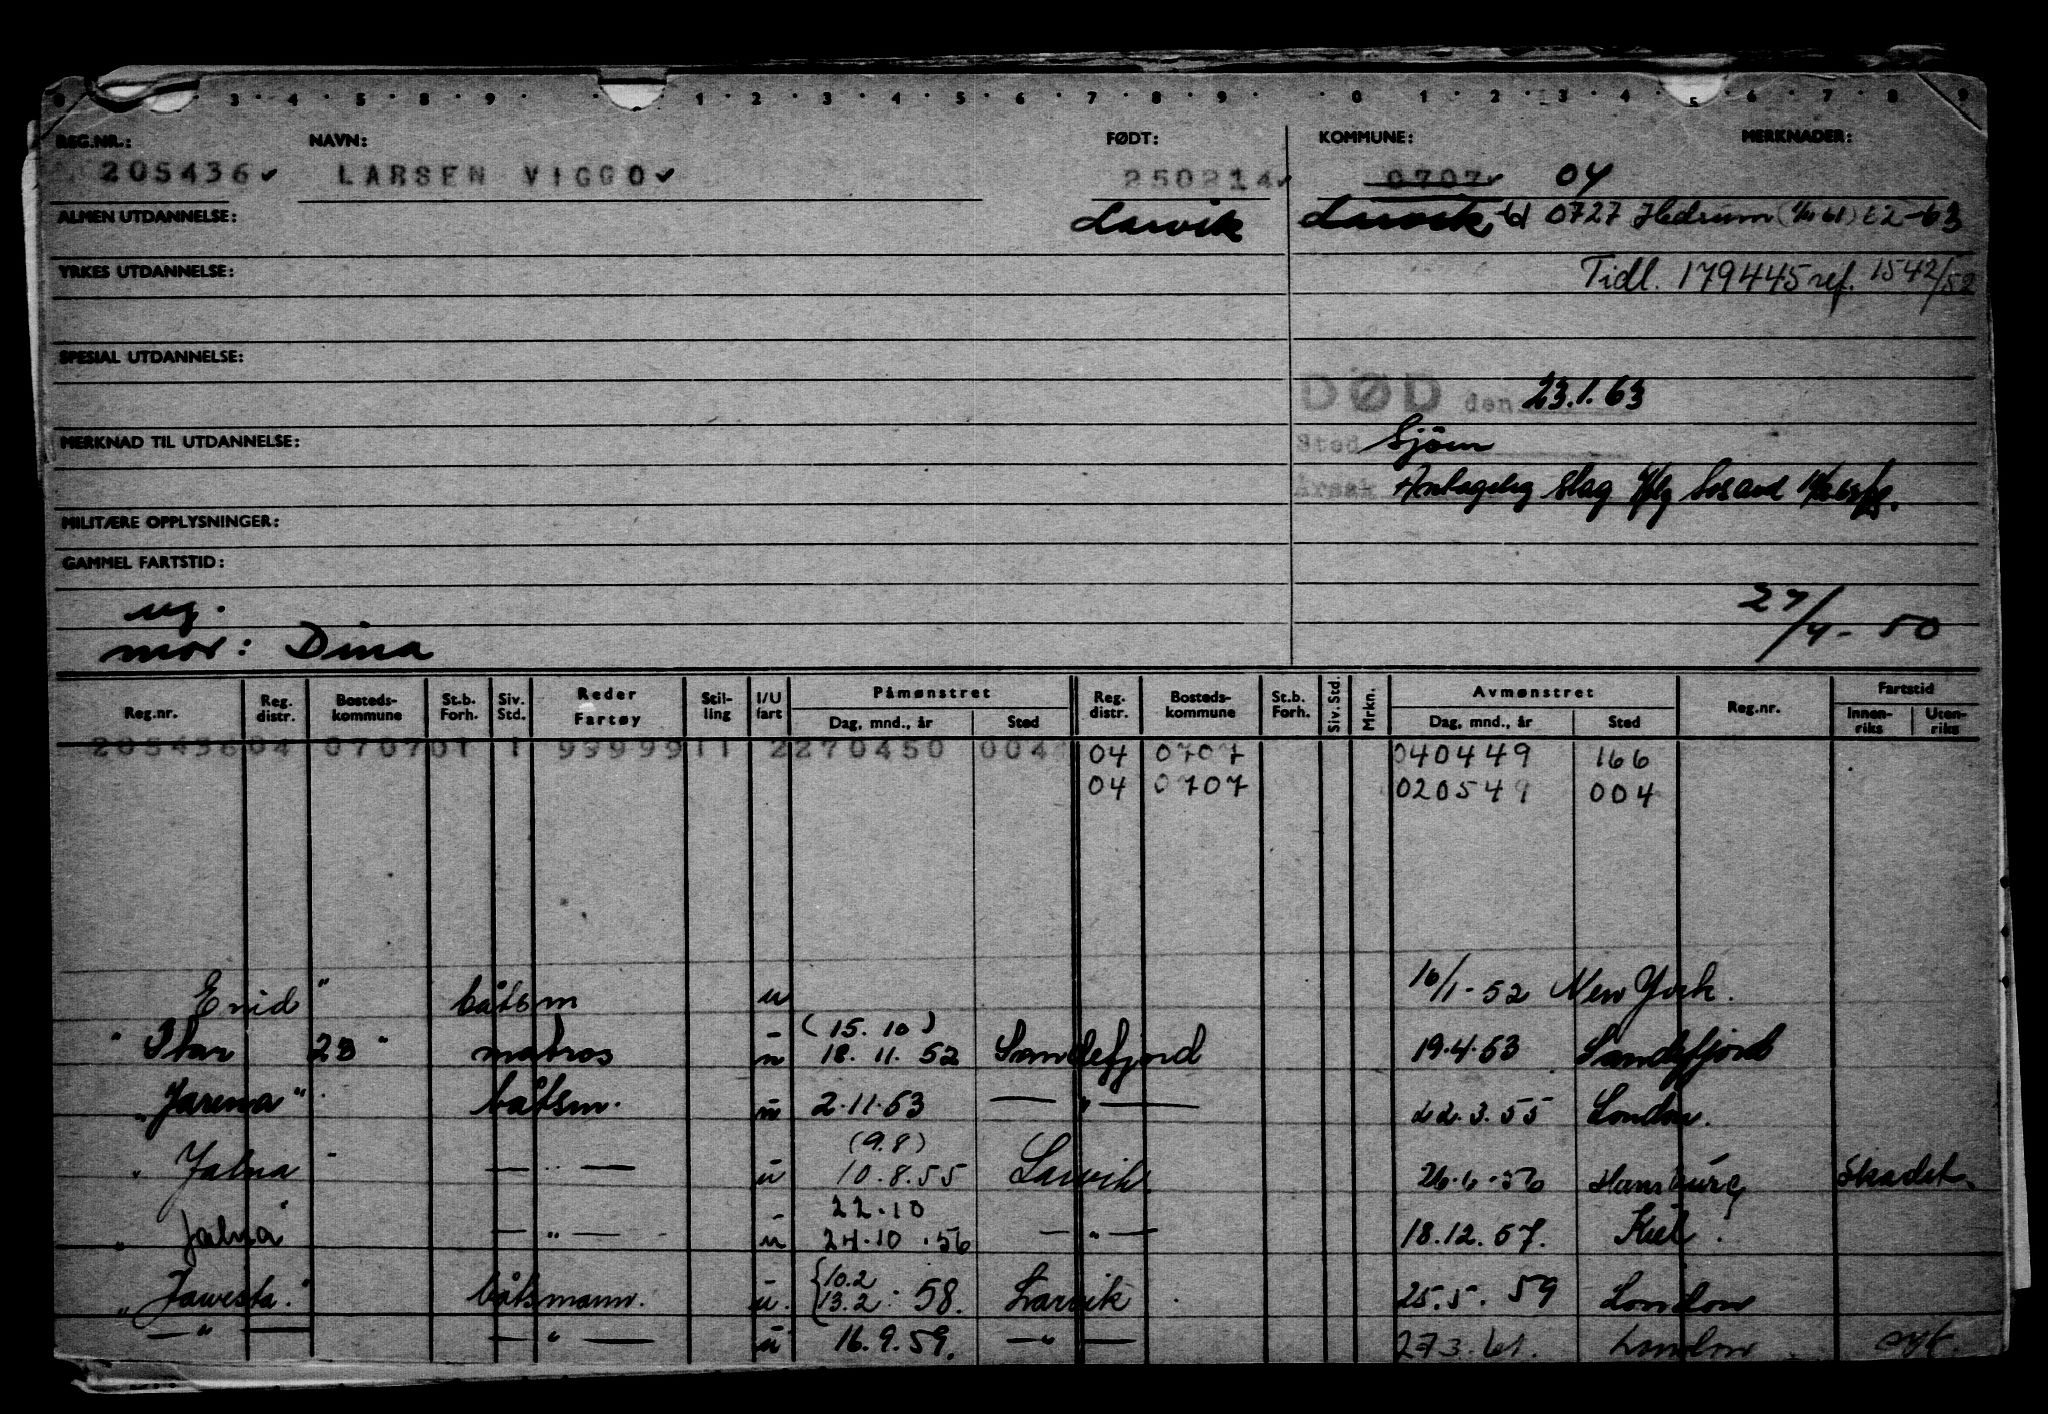 3 4 5 8 9 1 2 3 4 5 6 7 8 9 0 1 2 3 4 5 6 7 8 9
REG.NR.: NAVN: FØDT: KOMMUNE: MERKNADER:
205436 LARSEN VIGGO 250214 0707 04
ALMEN UTDANNELSE: Larvik Larvik 0727 Hedrum E2-63
YRKES UTDANNELSE: Tidl. 179445 ref. 1542/52
SPESIAL UTDANNELSE:
DØD den 23.1.63
MERKNAD TIL UTDANNELSE: Sted Sjøen
Årsak Antagelig slag
MILITÆRE OPPLYSNINGER:
GAMMEL FARTSTID:
ug. 27/4-50
mor: Dina
Reg.nr. Reg. distr. Bosteds-kommune St.b. Forh. Siv. Std. Reder Fartøy Stil-ling I/U fart Påmønstret Dag, mnd., år Sted Reg. distr. Bosteds-kommune St.b. Forh. Siv. Std. Mrkn. Avmønstret Dag, mnd., år Sted Reg.nr. Fartstid Innen-riks Uten-riks
205436 04 0707 01 1 99999 11 2 270450 004 04 0707 040449 166
04 0707 020549 004
Enid" båtsm u 16/1-52 New York.
(15.10)
"Star 23" matros u 18.11.52 Sandefjord 19.4.53 Sandefjord
"Jarena" båtsm. u 2.11.53 — " — 22.3.55 London.
(9.8)
"Jalna" — " — u 10.8.55 Larvik 26.6.56 Hamburg Skadet.
22.10
"Jalna" — " — u 24.10.56 — " — 18.12.57. Kiel.
10.2
"Jawesta." båtsmann. u. 13.2. 58. Larvik 25.5.59 London
— " — — " — u 16.9.59. — " — 27.3.61. London syk.